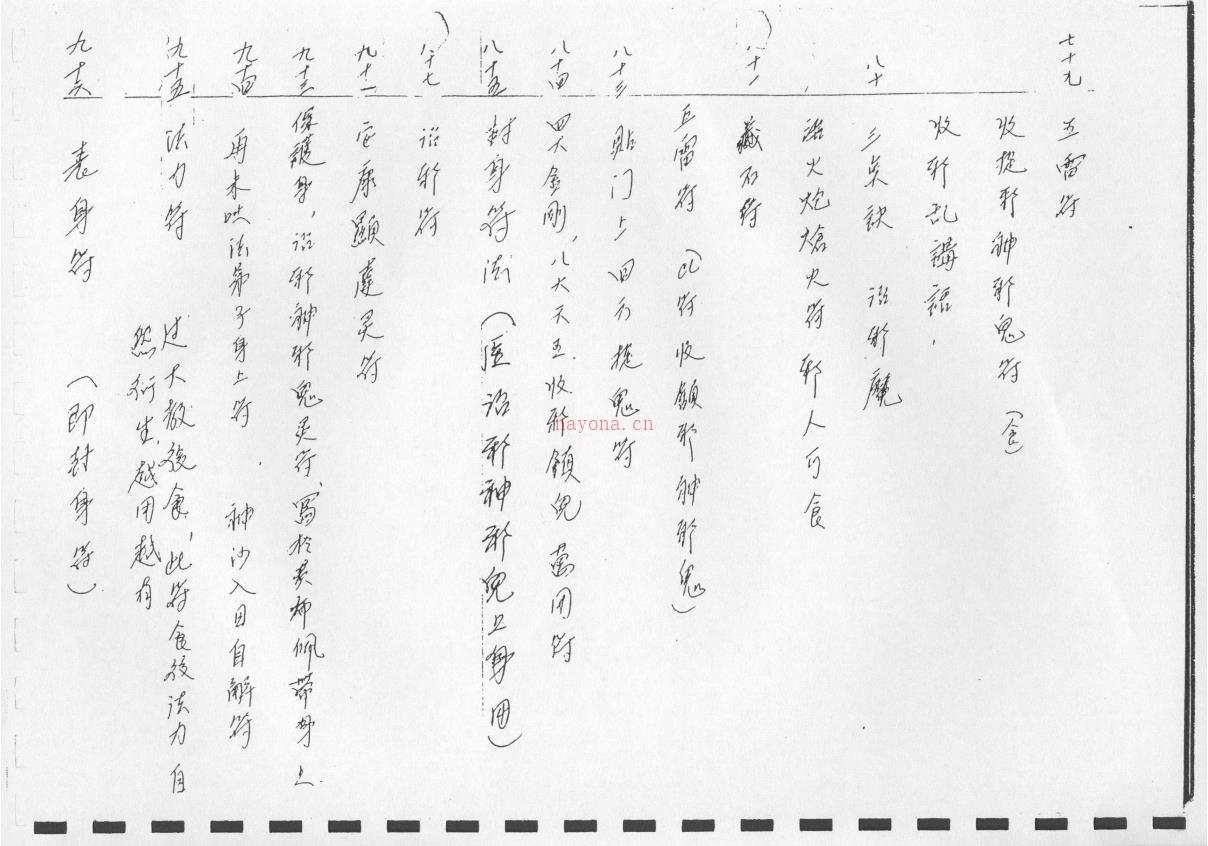 七十九 五雷符
收捉邪神邪鬼符（食）
收邪乱講話，
八十 三泉訣 治邪魔
治火炮槍火符 邪人可食
八十一 藏石符
五雷符（此符收鎖邪神邪鬼）
八十三 貼门上四方捉鬼符
八十四 四大金剛，八大天王收邪鎖鬼萬用符
八十五 封身符法（医治邪神邪鬼上身用）
八十七 治邪符
九十一 安康顯達灵符
九十三 保護身，治邪神邪鬼灵符，寫於黃布佩帶身上
九十四 再未 法弟子身上符 神沙入目自解符
九十五 法力符 过大教後食，此符食後法力自
然衍生，越用越有
九十六 表身符（即封身符）
nayona.cn